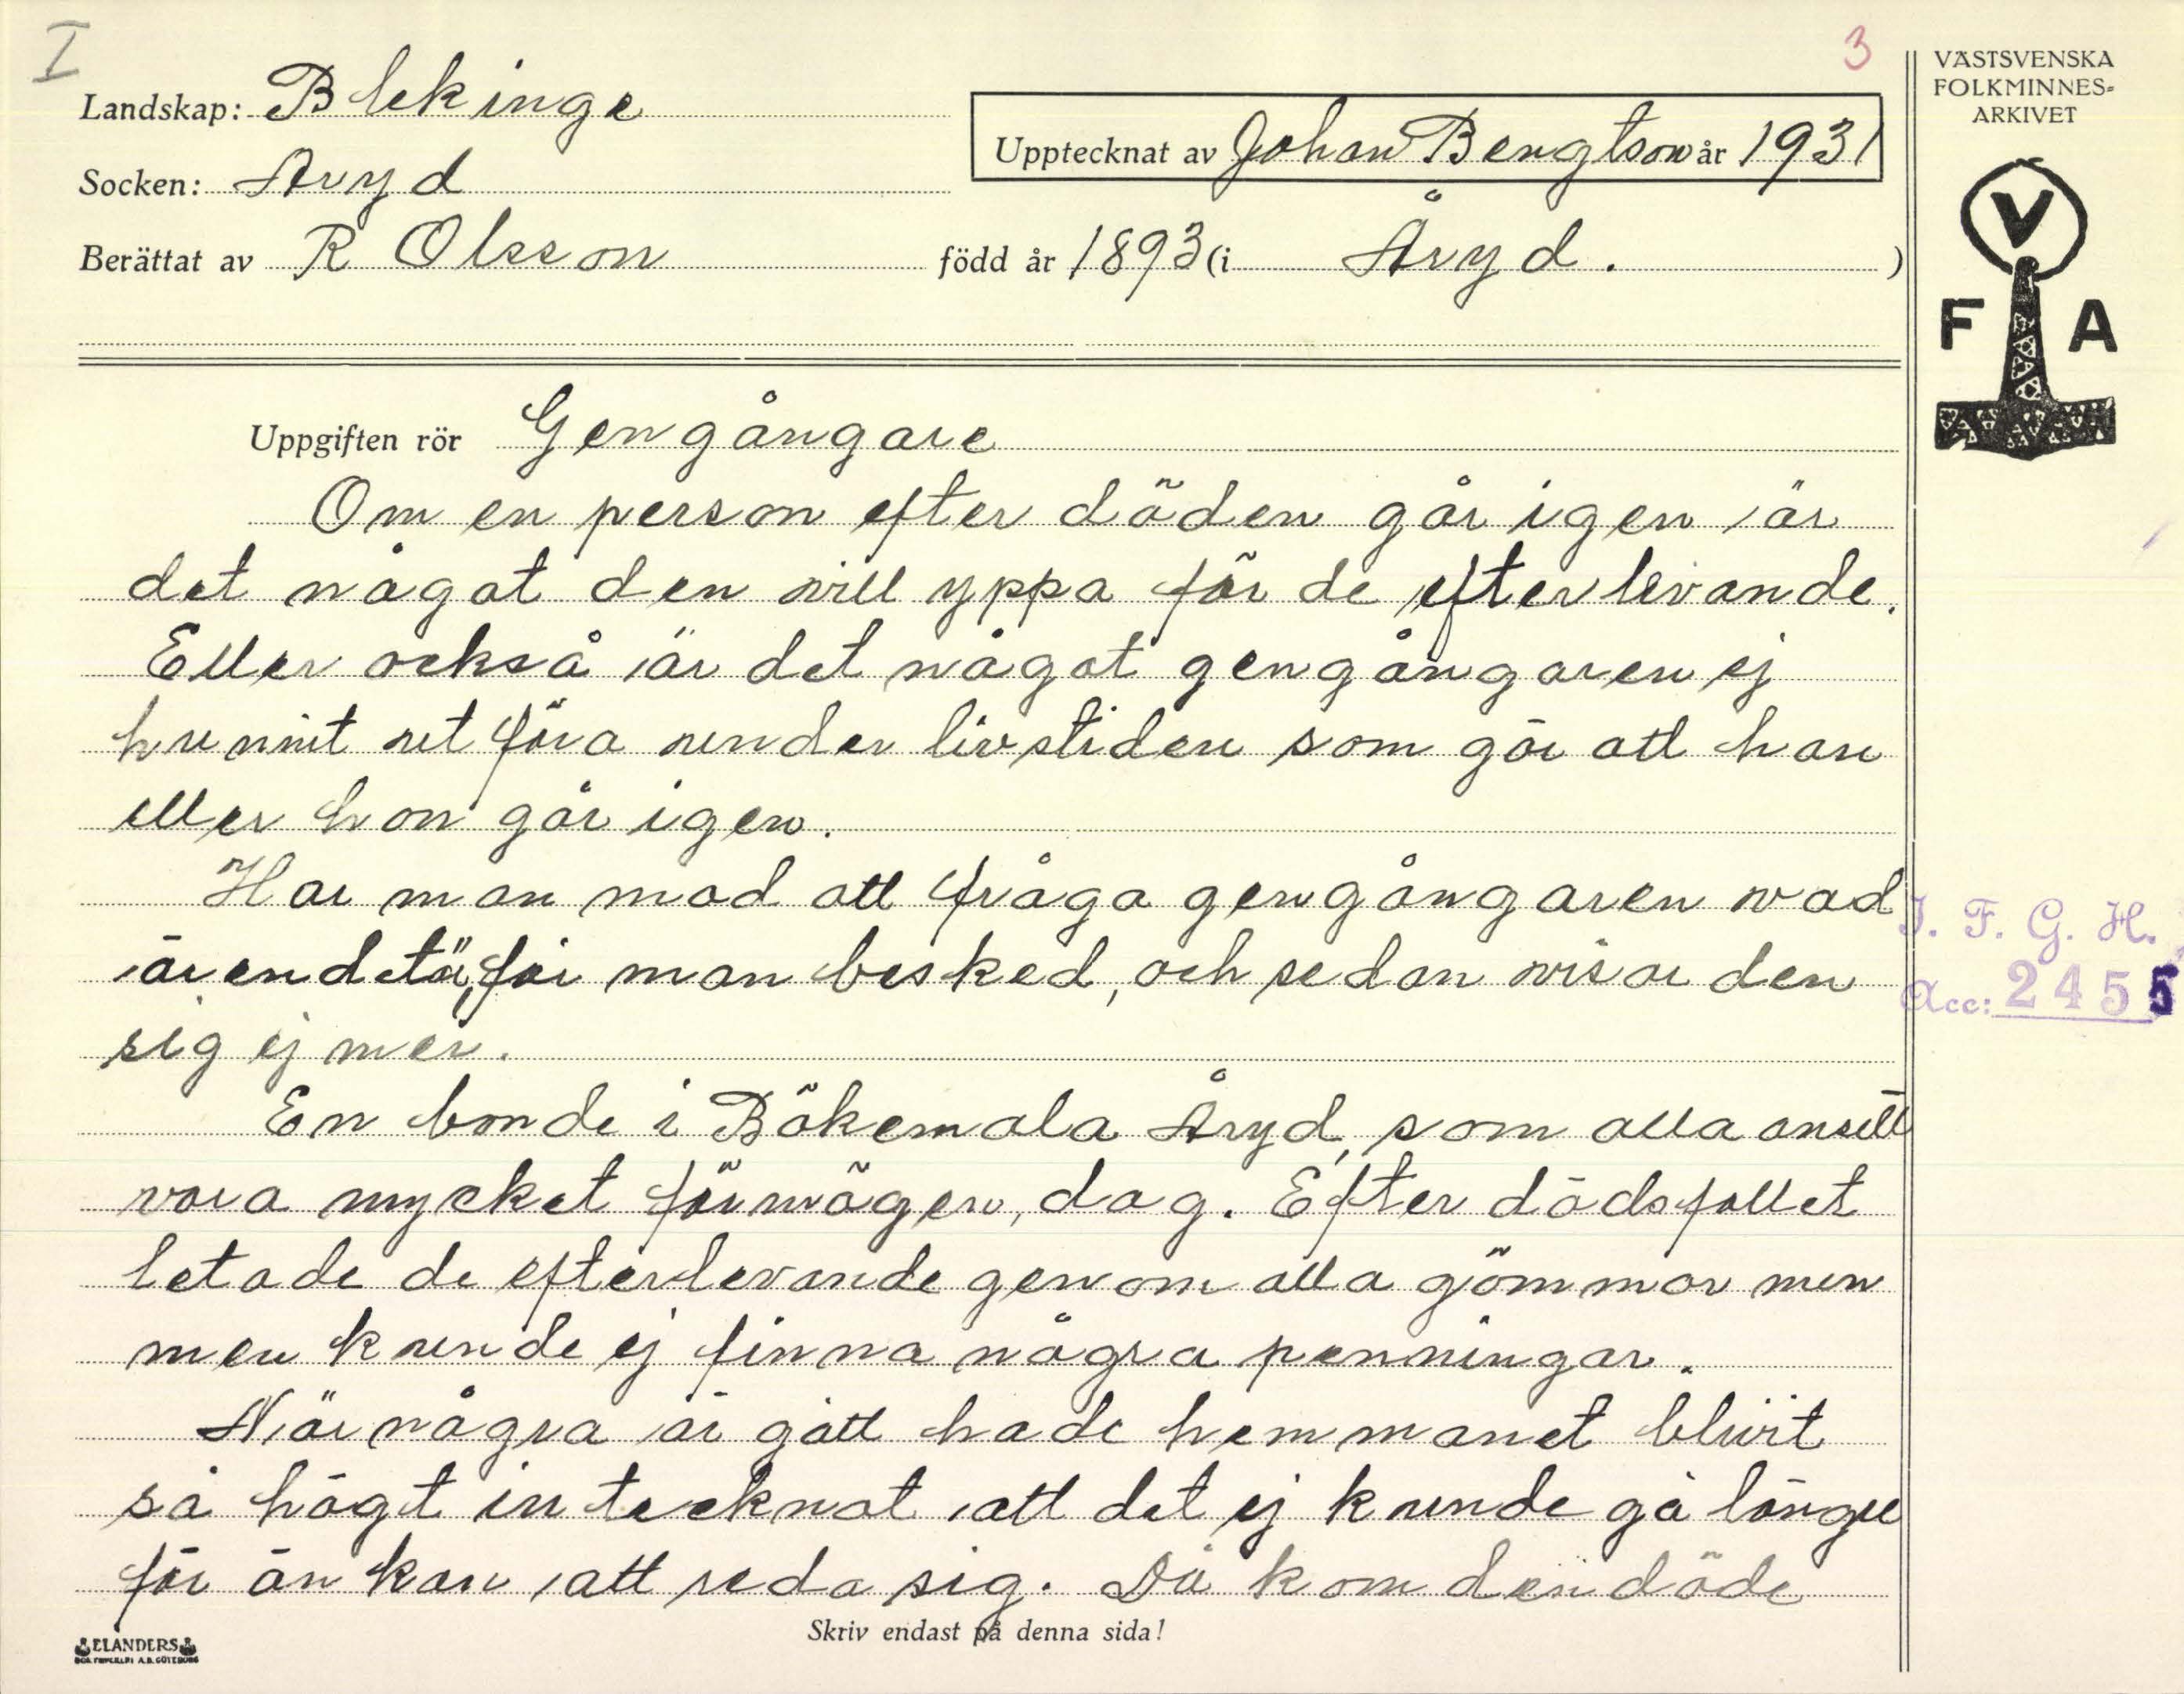 I
3
Landskap: Blekinge
Socken: Åryd
Upptecknat av Johan Bengtson år 1931
Berättat av R Olsson född år 1893 (i Åryd. )
VÄSTSVENSKA
FOLKMINNES-
ARKIVET
V
F A
Uppgiften rör Gengångare
Om en person efter döden går igen är
det något den vill yppa för de efterlevande.
Eller också är det något gengångaren ej
hunnit utföra under livstiden som gör att han
eller hon går igen.
Har man mod att fråga gengångaren vad
ärendet är, får man besked, och sedan visar den
sig ej mer.
I. F. G. H.
Acc: 2455
En bonde i Bökemåla Åryd, som alla ansett
vara mycket förmögen, dog. Efter dödsfallet
letade de efterlevande genom alla gömmor men
men kunde ej finna några penningar.
När några år gått hade hemmanet blivit
så högt intecknat att det ej kunde gå längre
för änkan att reda sig. Då kom den döde
Skriv endast på denna sida!
ELANDERS